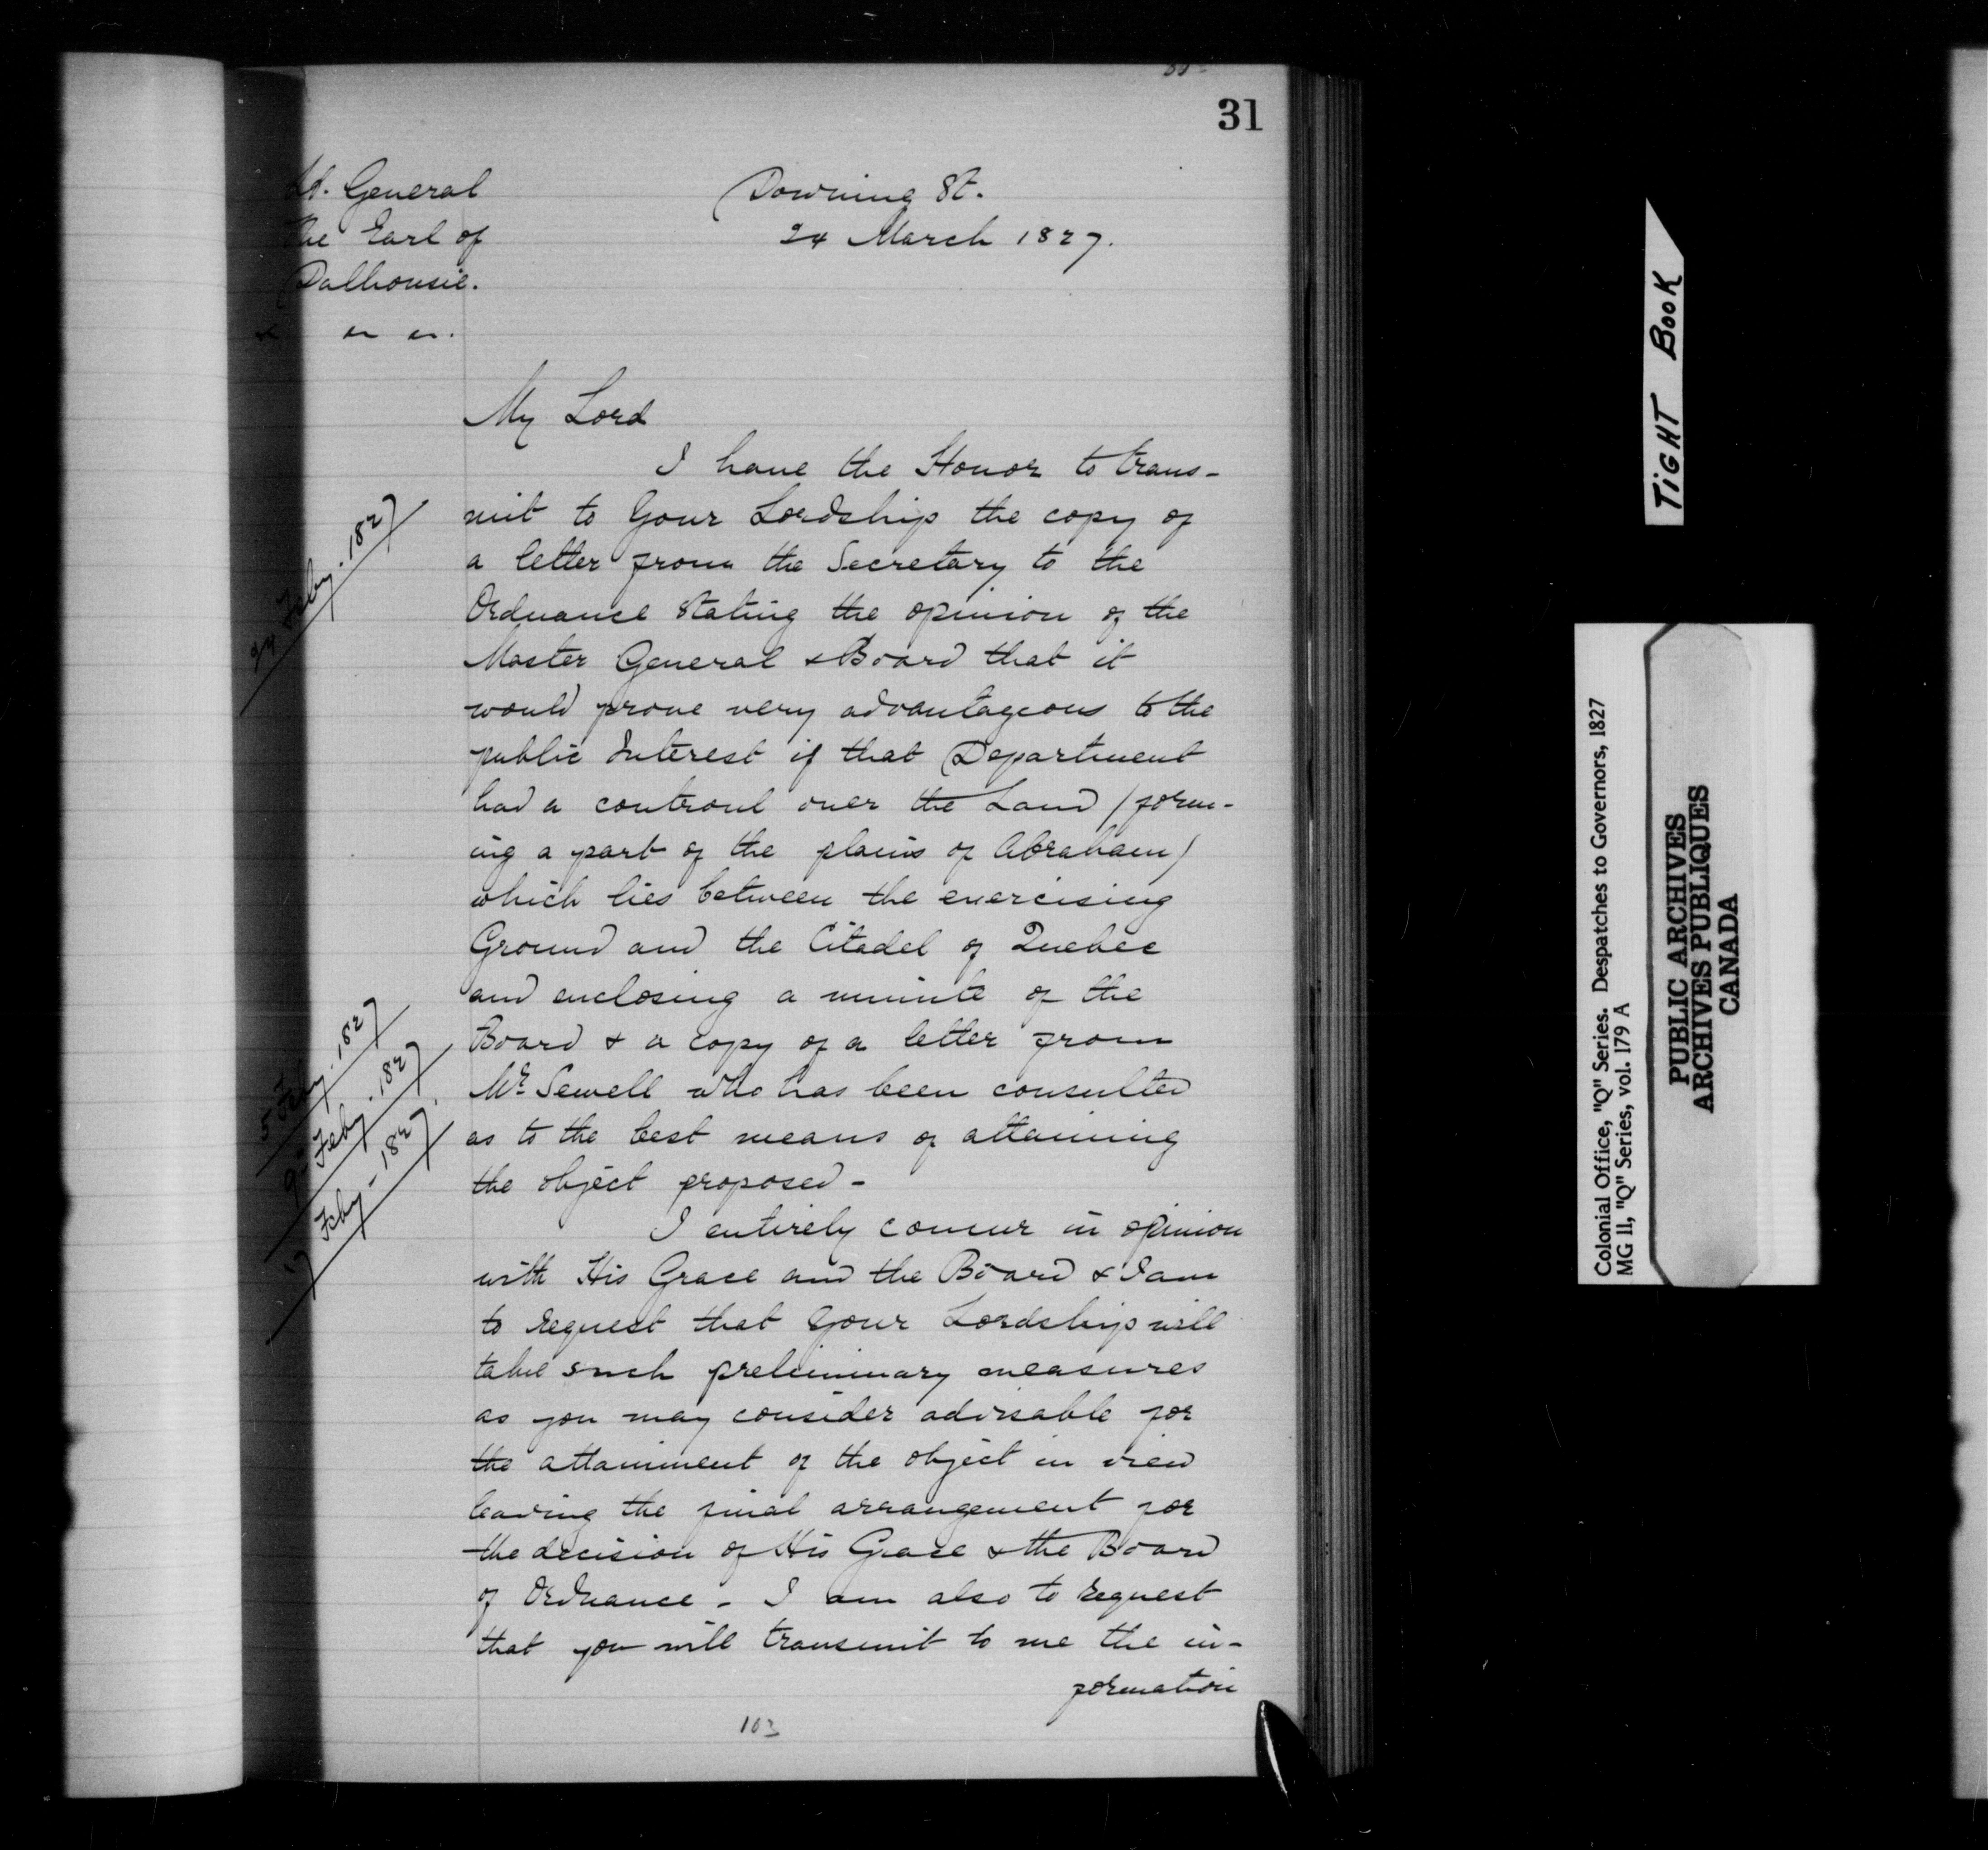 31
Lt. General
the Earl of
Dalhousie.
& &c &c.
Downing St.
24 March 1827.
My Lord
I have the Honor to trans-
mit to Your Lordship the copy of
a letter from the Secretary to the
Ordnance stating the opinion of the
Master General & Board that it
would prove very advantageous to the
public Interest if that Department
had a controul over the Land (form-
ing a part of the plains of Abraham)
which lies between the exercising
Ground and the Citadel of Quebec
and enclosing a minute of the
Board & a copy of a letter from
Mr. Sewell who has been consulted
as to the best means of attaining
the object proposed -
I entirely concur in opinion
with His Grace and the Board & I am
to request that Your Lordship will
take such preliminary measures
as you may consider advisable for
the attainment of the object in view
leaving the final arrangement for
the decision of His Grace & the Board
of Ordnance - I am also to request
that you will transmit to me the in-
formation
103
Feby. 1827
5 Feby. 1827
9 - Feby. 1827
17 Feby - 1827.
TIGHT BOOK
Colonial Office, "Q" Series. Despatches to Governors, 1827
MG 11, "Q" Series, vol. 179 A
PUBLIC ARCHIVES
ARCHIVES PUBLIQUES
CANADA